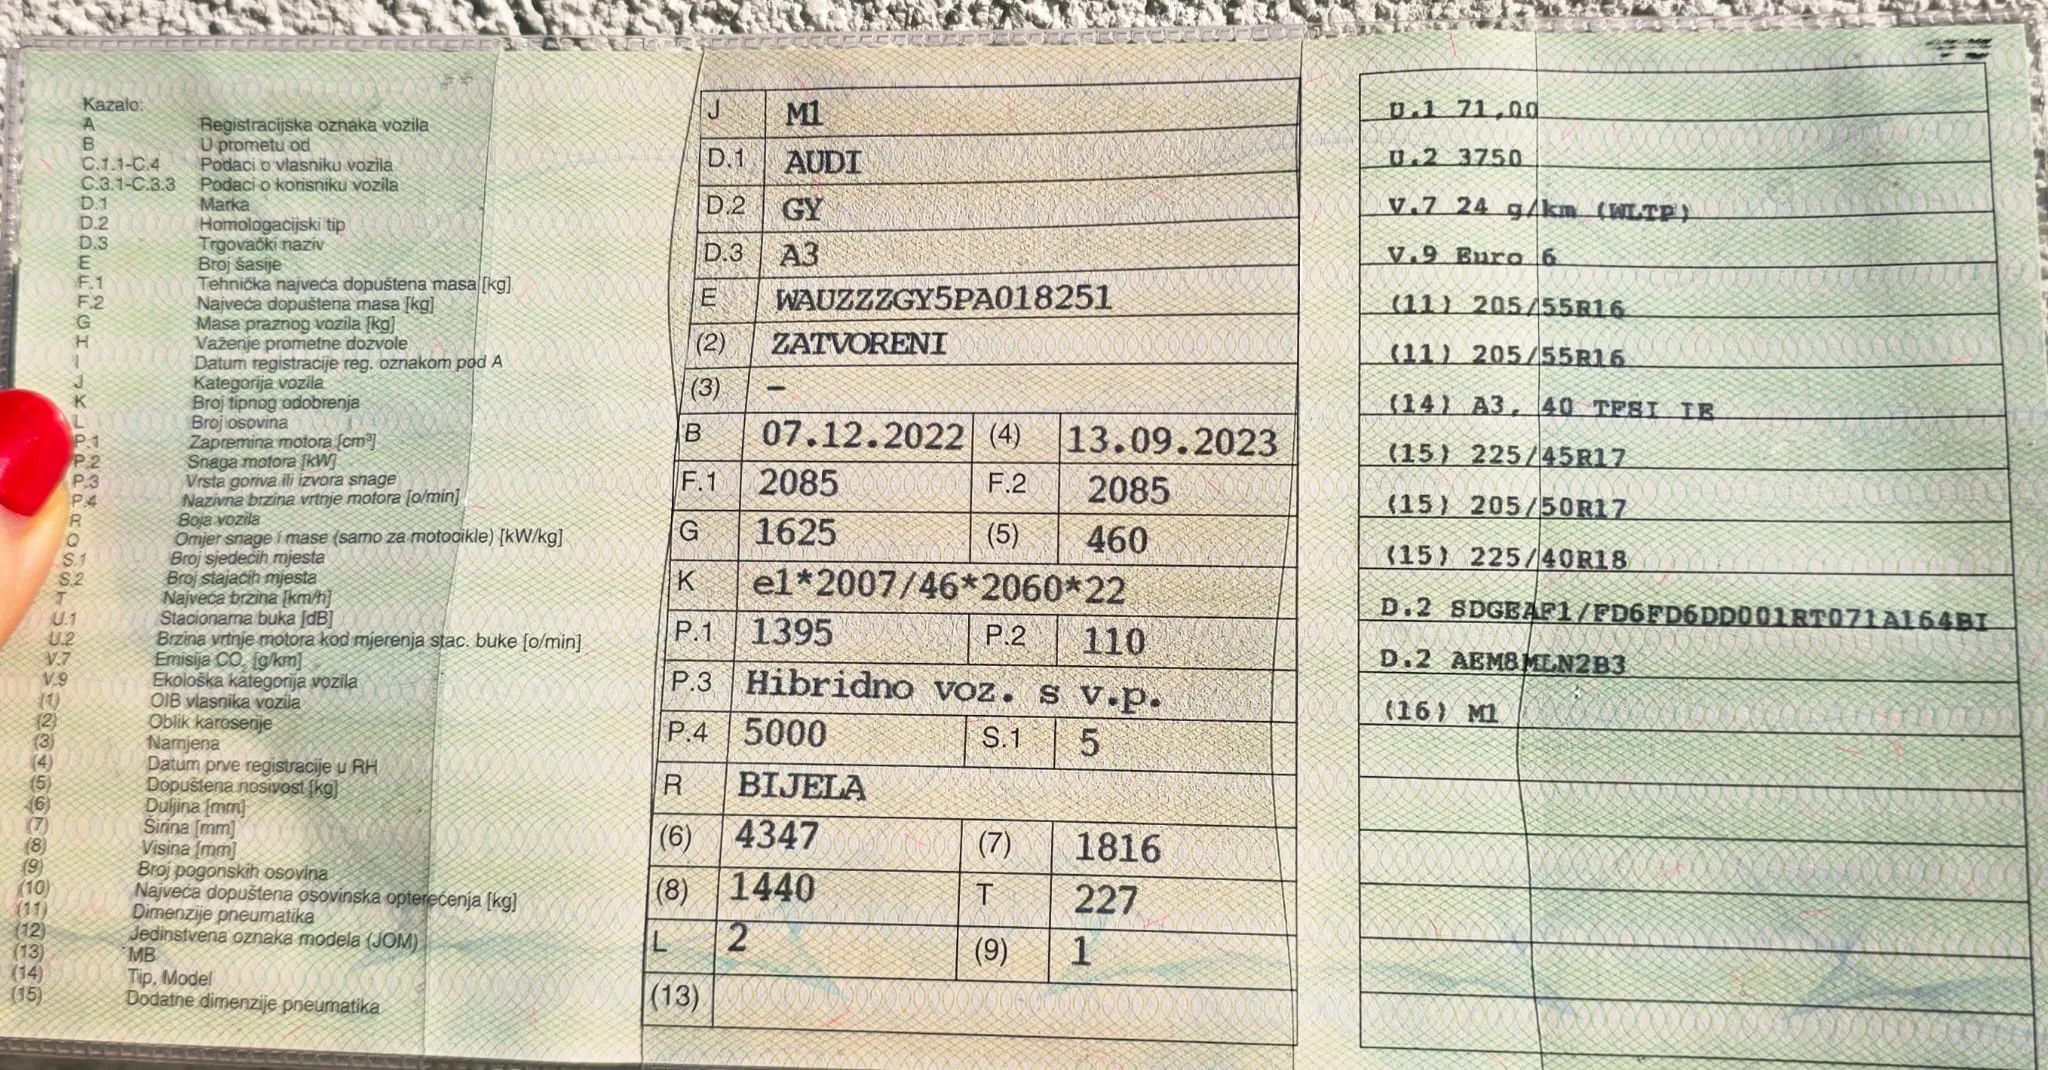 Kazalo:
A Registracijska oznaka vozila
B U prometu od
C.1.1-C.4 Podaci o vlasniku vozila
C.3.1-C.3.3 Podaci o korisniku vozila
D.1 Marka
D.2 Homologacijski tip
D.3 Trgovački naziv
E Broj šasije
F.1 Tehnička najveća dopuštena masa [kg]
F.2 Najveća dopuštena masa [kg]
G Masa praznog vozila [kg]
H Važenje prometne dozvole
I Datum registracije reg. oznakom pod A
J Kategorija vozila
K Broj tipnog odobrenja
L Broj osovina
P.1 Zapremina motora [cm³]
P.2 Snaga motora [kW]
P.3 Vrsta goriva ili izvora snage
P.4 Nazivna brzina vrtnje motora [o/min]
R Boja vozila
Q Omjer snage i mase (samo za motocikle) [kW/kg]
S.1 Broj sjedećih mjesta
S.2 Broj stajaćih mjesta
T Najveća brzina [km/h]
U.1 Stacionarna buka [dB]
U.2 Brzina vrtnje motora kod mjerenja stac. buke [o/min]
V.7 Emisija CO₂ [g/km]
V.9 Ekološka kategorija vozila
(1) OIB vlasnika vozila
(2) Oblik karoserije
(3) Namjena
(4) Datum prve registracije u RH
(5) Dopuštena nosivost [kg]
(6) Duljina [mm]
(7) Širina [mm]
(8) Visina [mm]
(9) Broj pogonskih osovina
(10) Najveća dopuštena osovinska opterećenja [kg]
(11) Dimenzije pneumatika
(12) Jedinstvena oznaka modela (JOM)
(13) MB
(14) Tip, Model
(15) Dodatne dimenzije pneumatika
J M1
D.1 AUDI
D.2 GY
D.3 A3
E WAUZZZGY5PA018251
(2) ZATVORENI
(3) –
B 07.12.2022 (4) 13.09.2023
F.1 2085 F.2 2085
G 1625 (5) 460
K e1*2007/46*2060*22
P.1 1395 P.2 110
P.3 Hibridno voz. s v.p.
P.4 5000 S.1 5
R BIJELA
(6) 4347 (7) 1816
(8) 1440 T 227
L 2 (9) 1
(13)
U.1 71,00
U.2 3750
V.7 24 g/km (WLTP)
V.9 Euro 6
(11) 205/55R16
(11) 205/55R16
(14) A3, 40 TFSI IE
(15) 225/45R17
(15) 205/50R17
(15) 225/40R18
D.2 SDGEAF1/FD6FD6DD001RT071A164BI
D.2 AEM8MLN2B3
(16) M1